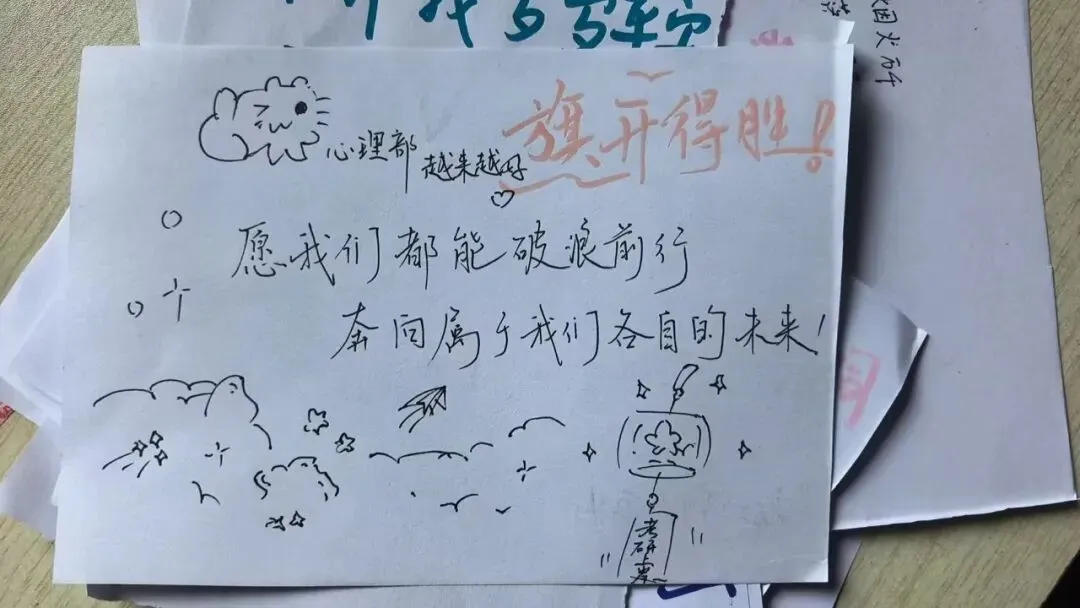 旗开得胜!
心理部越来越好
愿我们都能破浪前行
奔向属于我们各自的未来!
考研
因火所